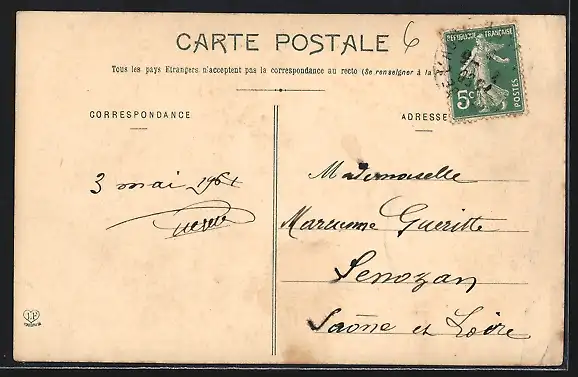 CARTE POSTALE
6
Tous les pays Etrangers n'acceptent pas la correspondance au recto (Se renseigner à la
CORRESPONDANCE
ADRESSE
RÉPUBLIQUE FRANÇAISE
5c
POSTES
3 mai
Mademoiselle
Gueritte
Senozan
Saône et Loire